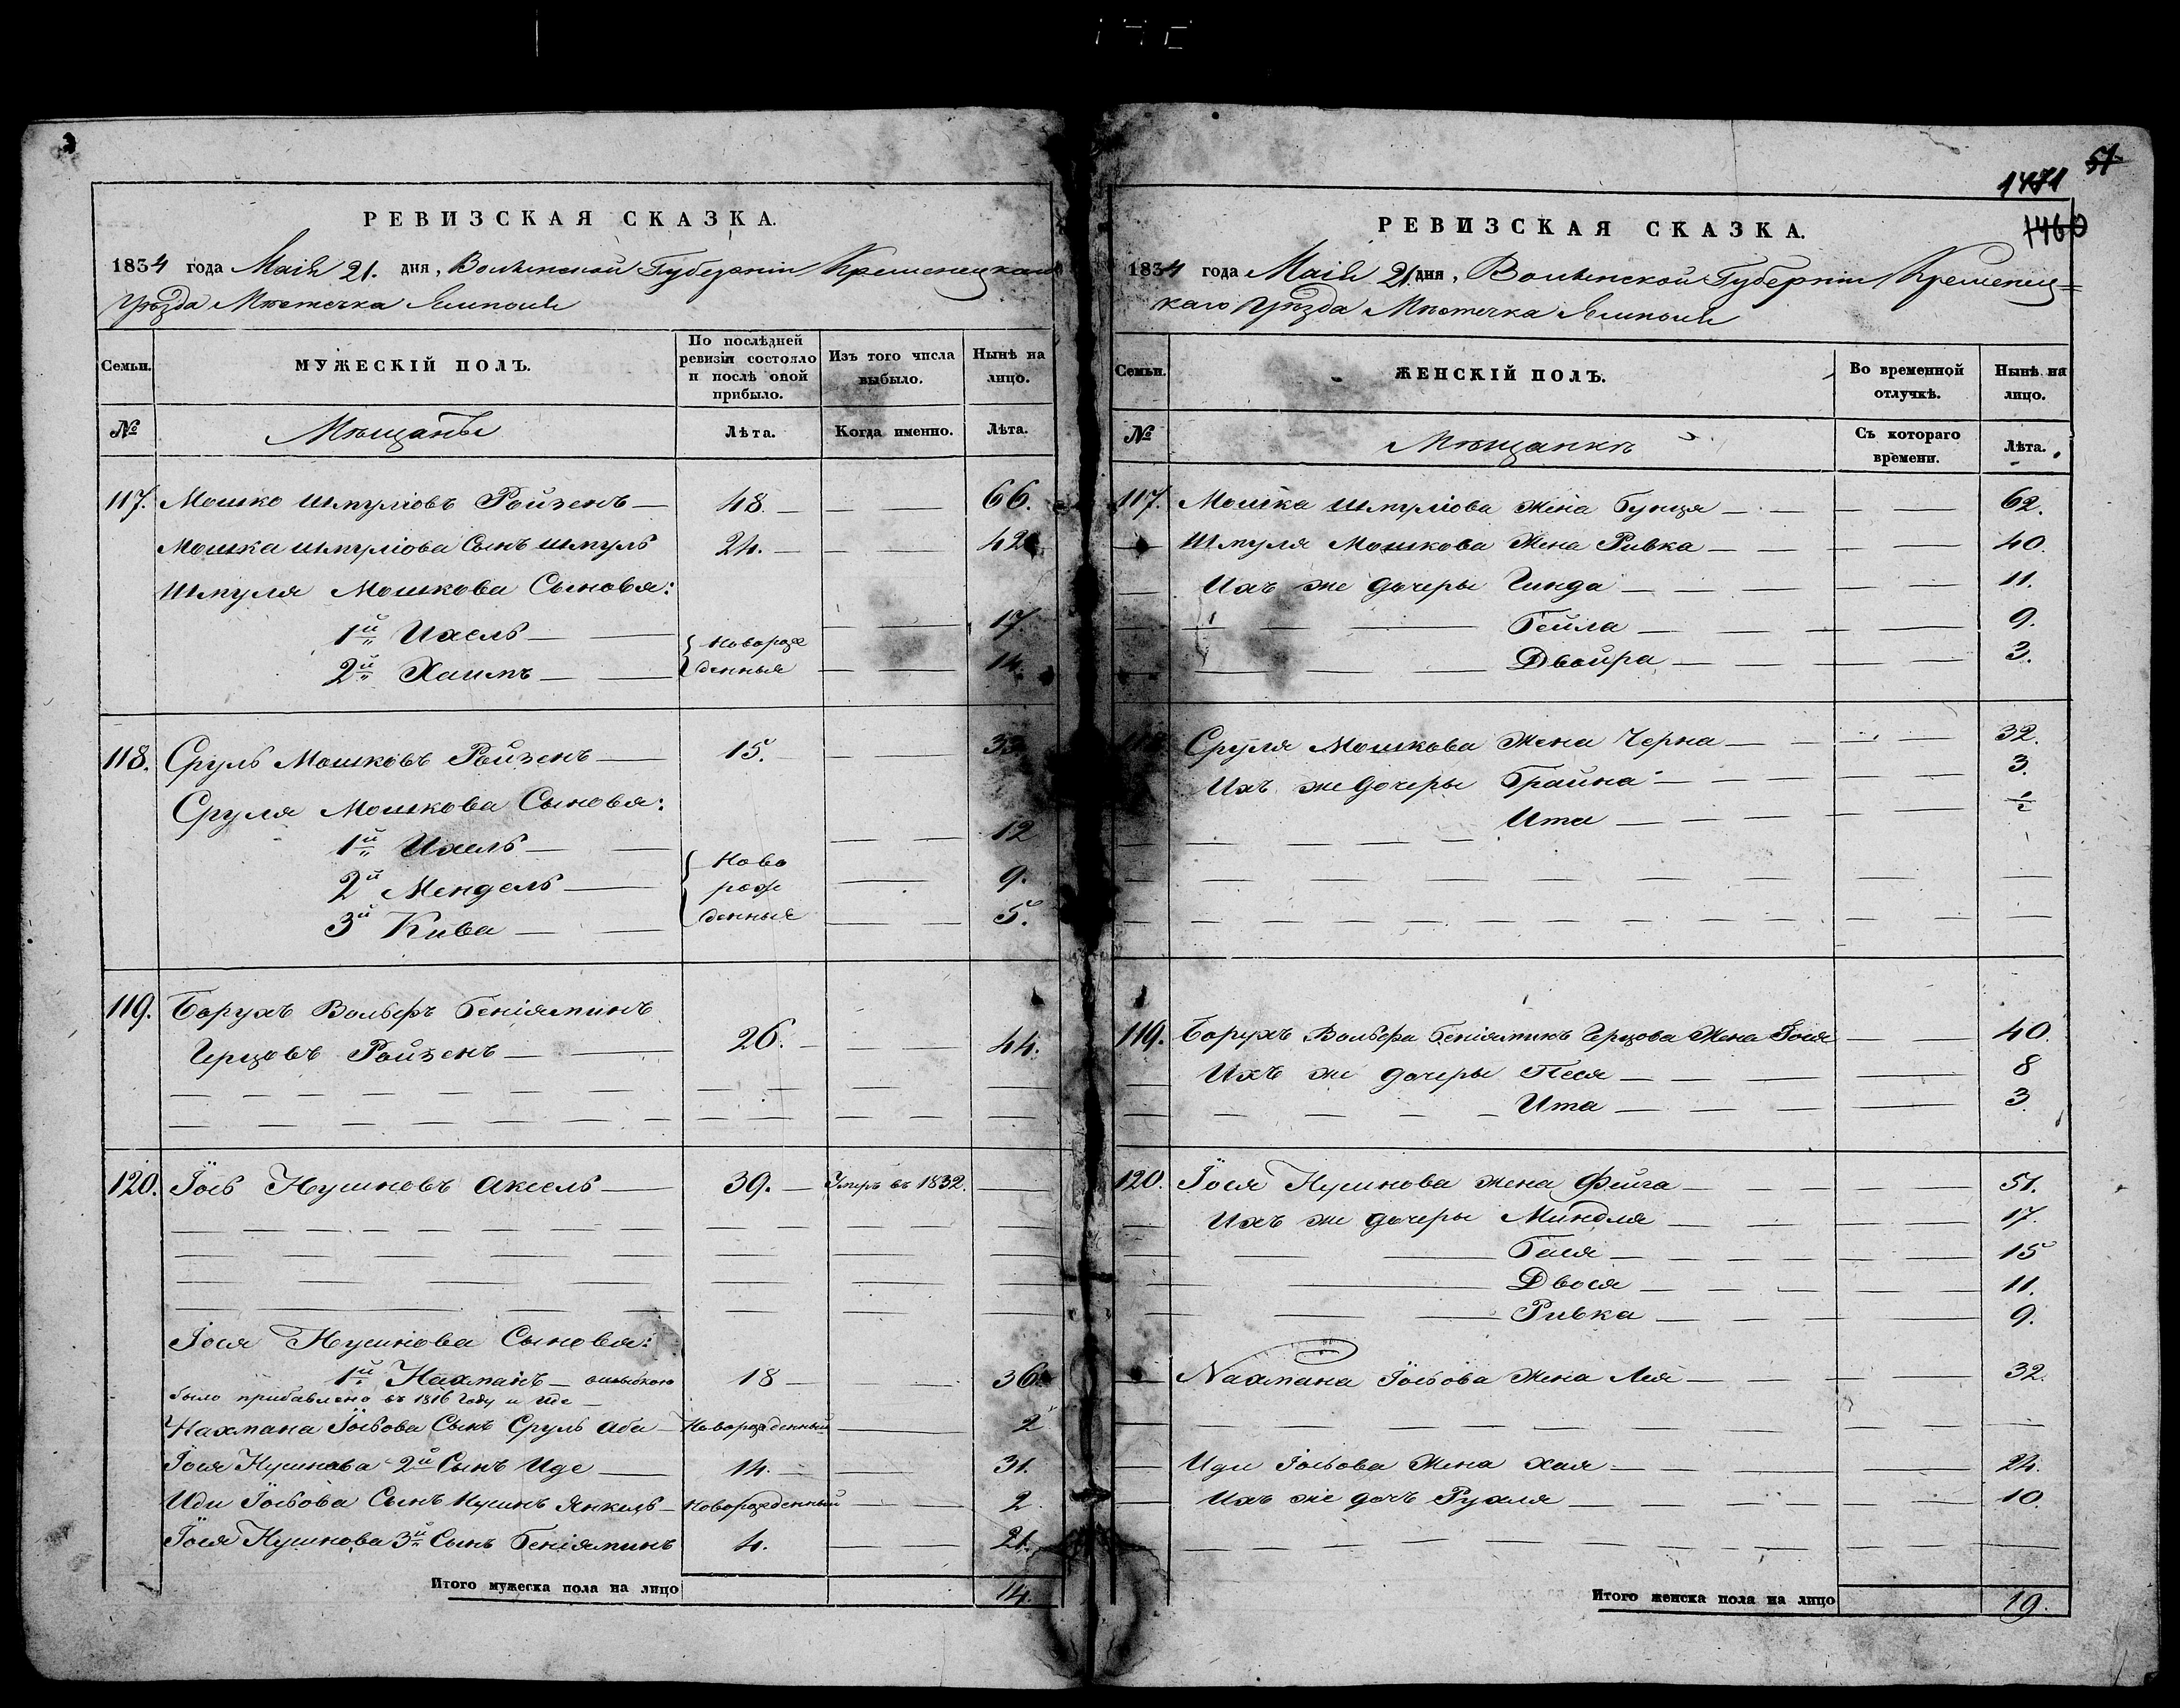 РЕВИЗСКАЯ СКАЗКА.
1834 года Маія 21. дня, Волынской Губерніи Кременецкаго
Уѣзда Мѣстечка Ямполя
Семьи. МУЖЕСКІЙ ПОЛЪ. По послѣдней ревизіи состояло и послѣ оной прибыло. Изъ того числа выбыло. Нынѣ на лицо.
№ Мѣщанѣ Лѣта. Когда именно. Лѣта.
117. Мошко Шмуліовъ Ройзенъ 48. 66.
Мошка Шмуліова Сынъ Шмуль 24. 42
Шмуля Мошкова Сыновья:
1й Ихель Новорож 17
2й Хаимъ денныя 14.
118. Сруль Мошковъ Ройзенъ 15. 33
Сруля Мошкова Сыновья:
1й Ихель Ново 12
2й Мендель рож 9.
3й Кива денныя 5.
119. Борухъ Вольфъ Беніяминъ
Герцовъ Ройзенъ 26. 44.
120. Іось Нушновъ Аксель 39. Умеръ въ 1832.
Іося Нушнова Сыновья:
1й Нахманъ ошыбкою 18 36
было прибавлено въ 1816 Году и Иде
Нахмана Іосьова Сынъ Сруль Аба Новорожденный 2
Іося Нушнова 2й Сынъ Иде 14. 31.
Иди Іосьова Сынъ Нусинъ Янкель Новорожденный 2.
Іося Нушнова 3й Сынъ Беніяминъ 4. 21.
Итого мужеска пола на лицо 14.
51
1471
1460
РЕВИЗСКАЯ СКАЗКА.
1834 года Маія 21 дня, Волынской Губерніи Кременец=
каго Уѣзда Мѣстечка Ямполя
Семьи. ЖЕНСКІЙ ПОЛЪ. Во временной отлучкѣ. Нынѣ на лицо.
№ Мѣщанкѣ Съ котораго времени. Лѣта.
117. Мошка Шмуліова Жена Бунця 62.
Шмуля Мошкова Жена Ривка 40.
Ихъ же дочеры Гинда 11.
Бейла 9.
Двойра 3.
118. Сруля Мошкова Жена Черна 32.
Ихъ же дочеры Брайна 3.
Ита ½
119. Борухъ Вольфа Беніяминъ Герцова Жена Гося 40.
Ихъ же дочеры Песя 8
Ита 3.
120. Іося Нушнова жена Фейга 51.
Ихъ же дочеры Миндля 17.
Бася 15
Двося 11.
Ривка 9.
Нахмана Іосьова Жена Лея 32.
Иди Іосьова Жена Хая 24.
Ихъ же дочъ Рухля 10.
Итого женска пола на лицо 19.